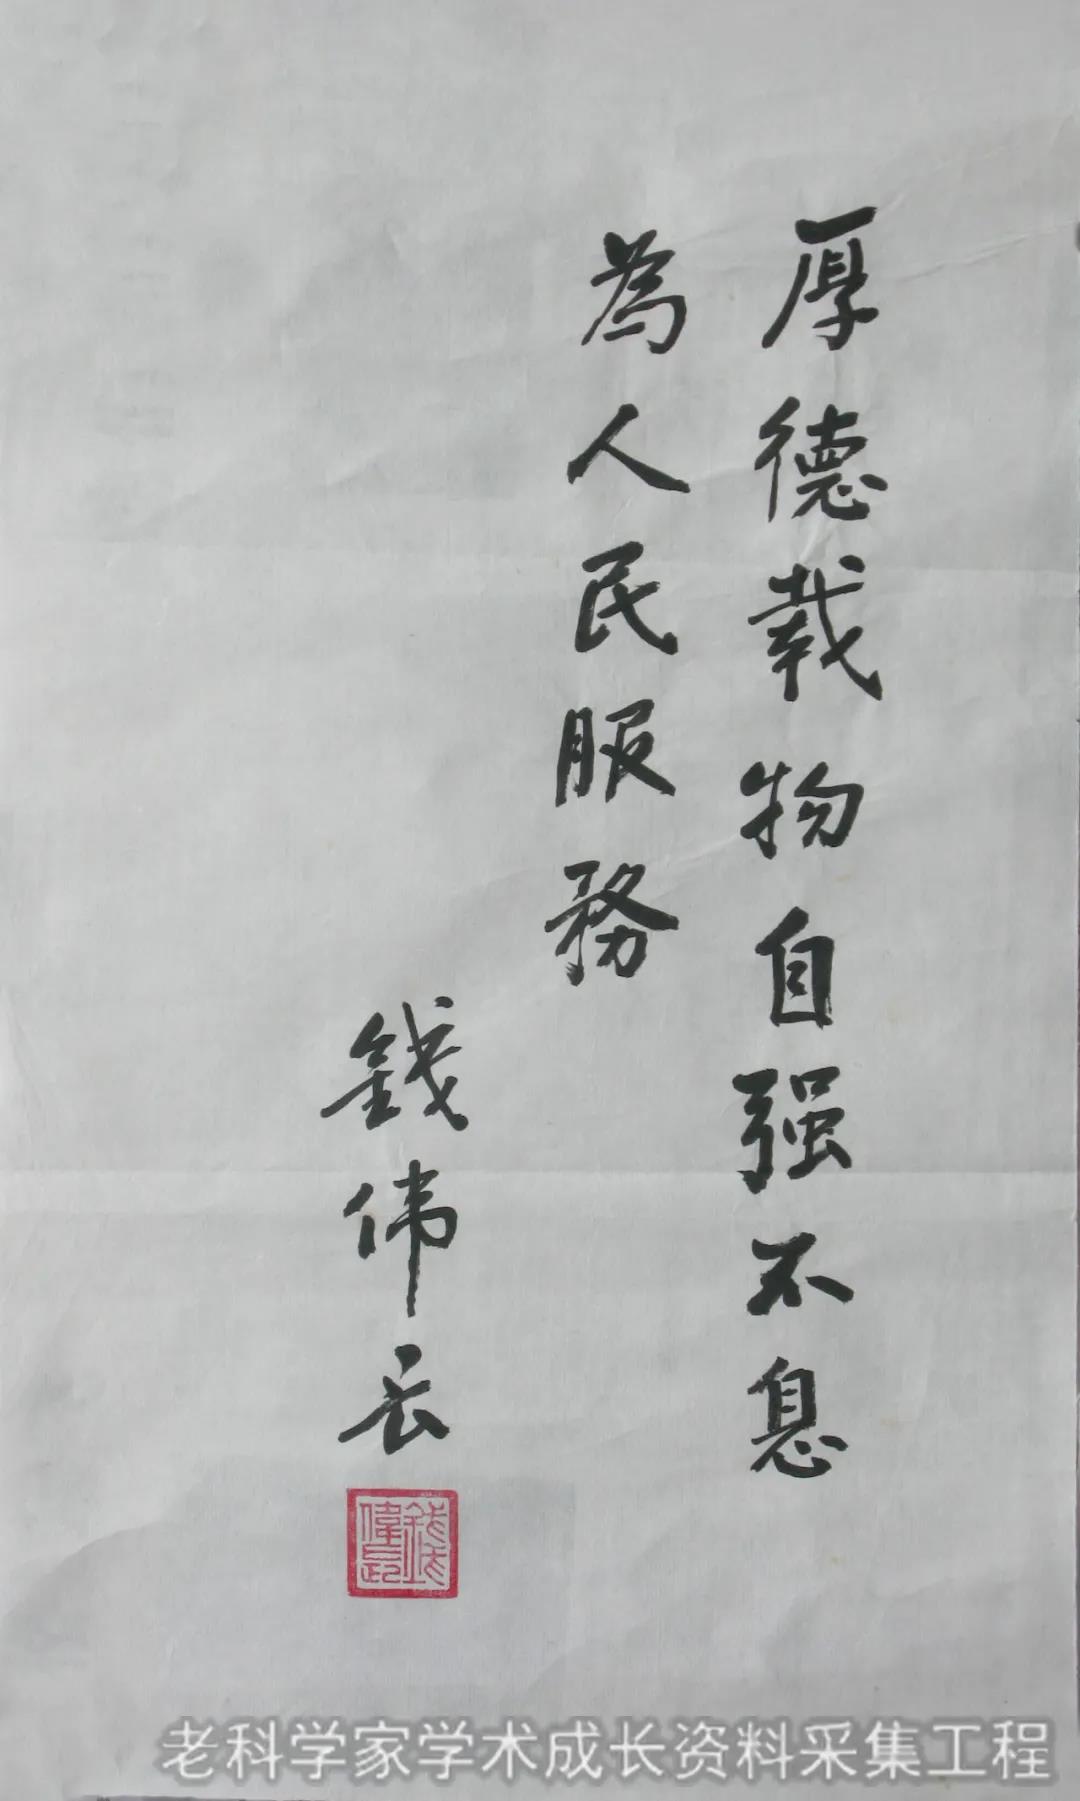 厚德载物自强不息
為人民服務
錢伟长
錢偉長
老科学家学术成长资料采集工程